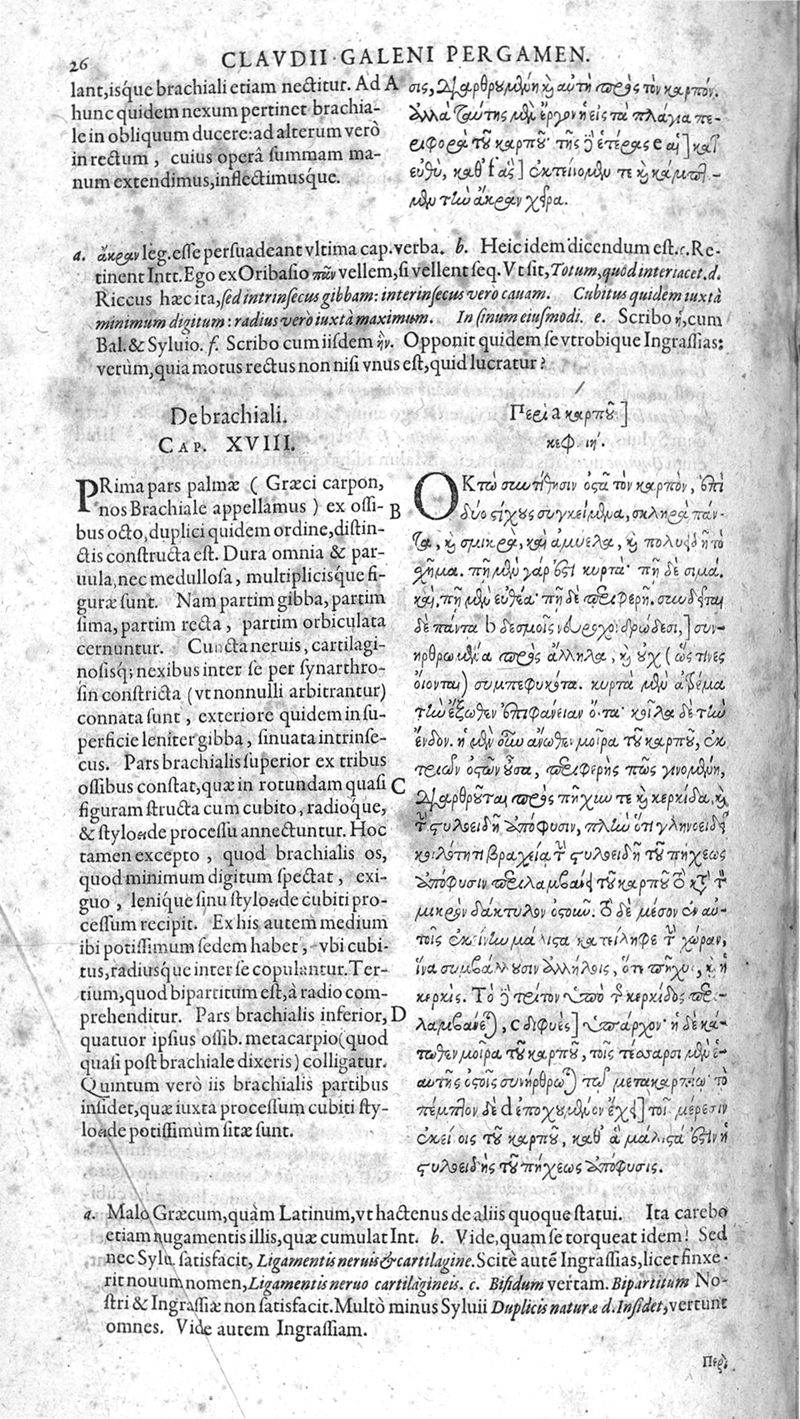 26 CLAVDII GALENI PERGAMEN.
lant, isque brachiali etiam nectitur. Ad A
hunc quidem nexum pertinet brachia-
le in obliquum ducere: ad alterum verò
in rectum, cuius operâ summam ma-
num extendimus, inflectimusque.
σις, διαρθρουμένη καὶ αὐτὴ πρὸς τὸν καρπόν.
ἀλλὰ ταύτης μὲν ἔργον ἡ εἰς τὰ πλάγια πε-
ριφορὰ τοῦ καρποῦ· τῆς δὲ ἑτέρας e αἱ] κατ᾽
εὐθὺ, καθ᾽ f ἃς] ἐκτείνομέν τε καὶ κάμπτο-
μεν τὴν ἄκραν χεῖρα.
a. ἄκραν leg. esse persuadeant vltima cap. verba. b. Heic idem dicendum est. c. Re-
tinent Intt. Ego ex Oribasio πᾶν vellem, si vellent seq. Vt sit, Totum, quod interiacet. d.
Riccus hæc ita, sed intrinsecus gibbam: interinsecus vero cauam. Cubitus quidem iuxtà
minimum digitum: radius vero iuxtà maximum. In sinum eiusmodi. e. Scribo ἡ, cum
Bal. & Syluio. f. Scribo cum iisdem ἣν. Opponit quidem se vtrobique Ingrassias:
verùm, quia motus rectus non nisi vnus est, quid lucratur?
De brachiali.
CAP. XVIII.
PRima pars palmæ ( Græci carpon,
nos Brachiale appellamus ) ex ossi- B
bus octo, duplici quidem ordine, distin-
ctis constructa est. Dura omnia & par-
uula, nec medullosa, multiplicisque fi-
guræ sunt. Nam partim gibba, partim
sima, partim recta, partim orbiculata
cernuntur. Cuncta neruis, cartilagi-
nosisq; nexibus inter se per synarthro-
sin constricta (vt nonnulli arbitrantur)
connata sunt, exteriore quidem in su-
perficie leniter gibba, sinuata intrinse-
cus. Pars brachialis superior ex tribus
ossibus constat, quæ in rotundam quasi C
figuram structa cum cubito, radioque,
& styloeide processu annectuntur. Hoc
tamen excepto, quod brachialis os,
quod minimum digitum spectat, exi-
guo, lenique sinu styloeide cubiti pro-
cessum recipit. Ex his autem medium
ibi potissimum sedem habet, vbi cubi-
tus, radiusque inter se copulantur. Ter-
tium, quod bipartitum est, à radio com-
prehenditur. Pars brachialis inferior, D
quatuor ipsius ossib. metacarpio (quod
quasi post brachiale dixeris) colligatur.
Quintum verò iis brachialis partibus
insidet, quæ iuxta processum cubiti sty-
loeide potissimùm sitæ sunt.
Περὶ a καρποῦ]
κεφ. ιη΄.
ΟΚτὼ συντίθησιν ὀστᾶ τὸν καρπὸν, ἐπὶ
δύο στίχους συγκείμενα, σκληρὰ πάν-
τα, καὶ σμικρὰ, καὶ ἀμύελα, καὶ πολυειδῆ τὸ
σχῆμα. πῆ μὲν γάρ ἐστι κυρτά· πῆ δὲ σιμά.
καὶ πῆ μὲν εὐθέα· πῆ δὲ περιφερῆ. συνδεῖται
δὲ πάντα b δεσμοῖς νευροχονδρώδεσι,] συν-
ηρθρωμένα πρὸς ἄλληλα, καὶ οὐχ (ὥς τινες
οἴονται) συμπεφυκότα. κυρτὰ μὲν ἀτρέμα
τὴν ἔξωθεν ἐπιφάνειαν ὄντα· κοῖλα δὲ τὴν
ἔνδον. ἡ μὲν οὖν ἄνωθεν μοῖρα τοῦ καρποῦ, ἐκ
τριῶν ὀστῶν οὖσα, περιφερής πως γινομένη,
διαρθροῦται πρὸς πῆχυν τε καὶ κερκίδα, καὶ
τὴν στυλοειδῆ ἀπόφυσιν, πλὴν ὅτι γληνοειδεῖ
κοιλότητι βραχείᾳ τὴν στυλοειδῆ τοῦ πήχεως
ἀπόφυσιν περιλαμβάνει τοῦ καρποῦ τὸ κατὰ τὸν
μικρὸν δάκτυλον ὀστοῦν. τὸ δὲ μέσον ἐν αὐ-
τοῖς ἐκείνην μάλιστα κατείληφε τὴν χώραν,
ἵνα συμβάλλουσιν ἀλλήλοις, ὅ τε πῆχυς, καὶ ἡ
κερκίς. Τὸ δὲ τρίτον ὑπὸ τῆς κερκίδος περι-
λαμβάνεται, c διφυὲς] ὑπάρχον· ἡ δὲ κά-
τωθεν μοῖρα τοῦ καρποῦ, τοῖς τέσσαρσι μὲν ἑ-
αυτῆς ὀστοῖς συνήρθρωται τῷ μετακαρπίῳ· τὸ
πέμπτον δὲ d ἐποχούμενον ἔχει] τοῖς μέρεσιν
ἐκείνοις τοῦ καρποῦ, καθ᾽ ἃ μάλιστά ἐστιν ἡ
στυλοειδὴς τοῦ πήχεως ἀπόφυσις.
a. Malo Græcum, quàm Latinum, vt hactenus de aliis quoque statui. Ita carebo
etiam nugamentis illis, quæ cumulat Int. b. Vide, quam se torqueat idem! Sed
nec Sylu. satisfacit, Ligamentis neruis & cartilagine. Scitè autē Ingrassias, licet finxe-
rit nouum nomen, Ligamentis neruo cartilagineis. c. Bifidum vertam. Bipartitum No-
stri & Ingrassiæ non satisfacit. Multò minus Syluii Duplicis naturæ d. Insidet, vertunt
omnes. Vide autem Ingrassiam.
Περὶ